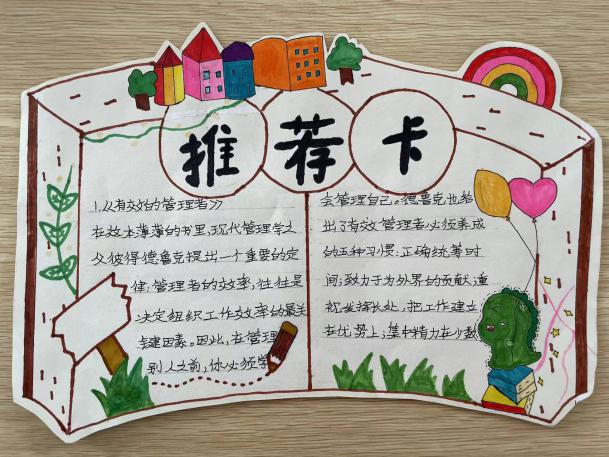 推荐卡
1.《有效的管理者》
在这本薄薄的书里,现代管理学之
父彼得德鲁克提出一个重要的定
律:管理者的效率,往往是
决定组织工作效率的最关
键因素。因此,在管理
别人之前,你必须学
会管理自己。德鲁克也给
出了有效管理者必须养成
的五种习惯:正确统筹时
间;致力于为外界的贡献,重
视发挥长处,把工作建立
在优势上;集中精力在少数